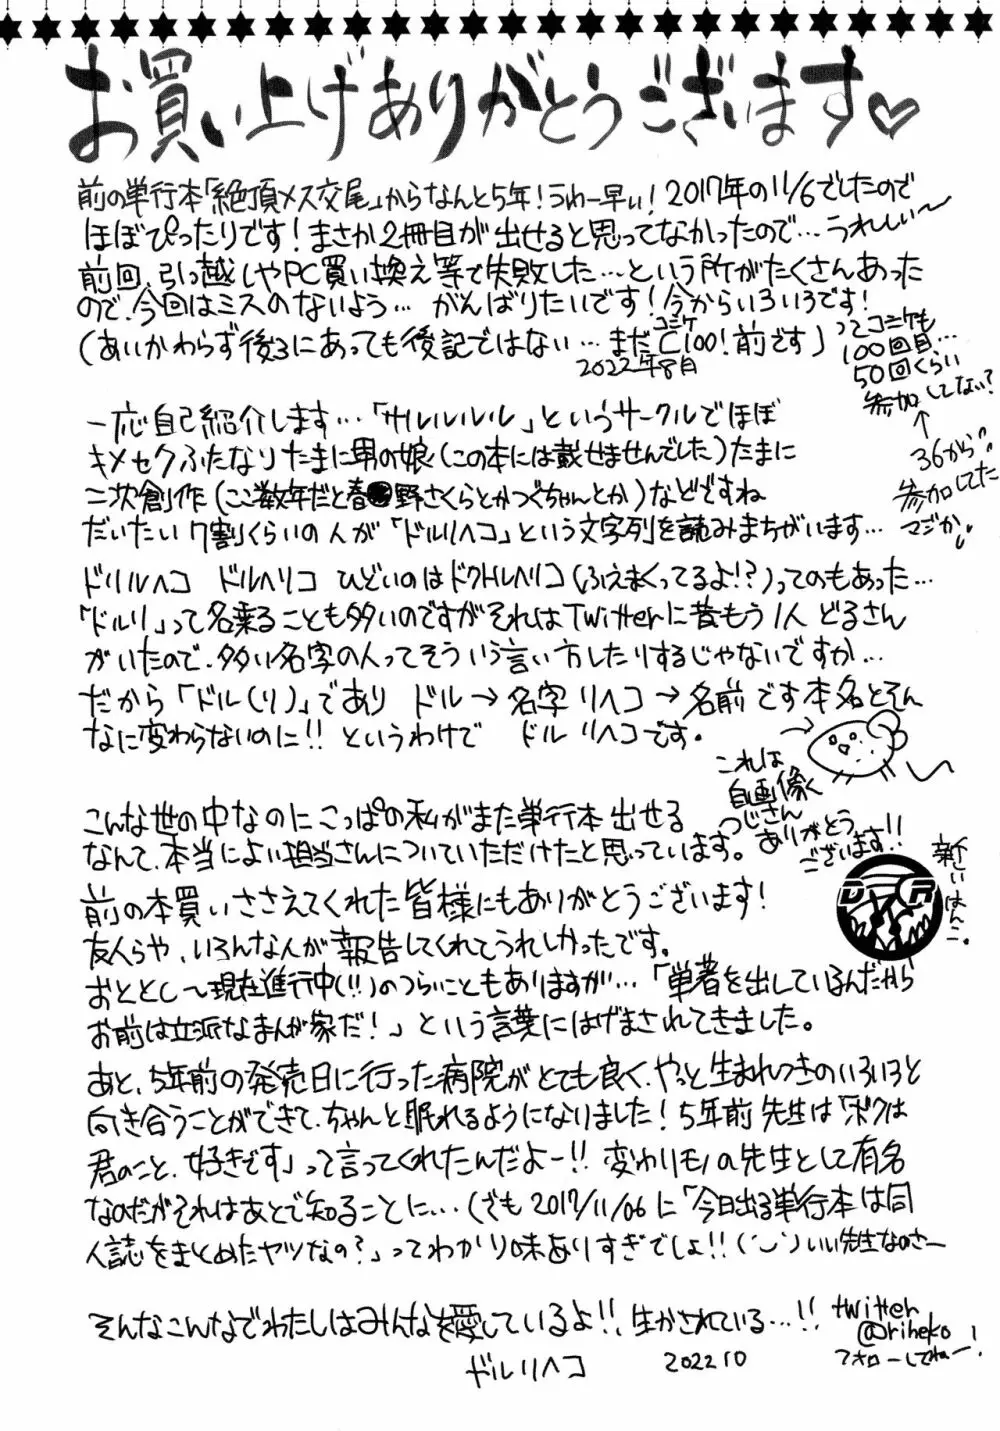 お買い上げありがとうございます♡
前の単行本「絶頂メス交尾」からなんと5年!うわー早い!2017年の11/6でしたので
ほぼぴったりです!まさか2冊目が出せると思ってなかったので…うれしい〜
前回、引っ越しやPC買い換え等で失敗した…という所がたくさんあった
ので、今回はミスのないよう… がんばりたいです!今からいろいろです!
(あいかわらず後ろにあっても後記ではない…まだC100!前です)
コミケ
2022年8月
ってコミケも
100回目…
50回くらい
参加してない?
↑
36から
参加してた
マジか
一応自己紹介します…「サルルルルル」というサークルでほぼ
キメセクふたなりたまに男の娘(この本には載せませんでした)たまに
二次創作(ここ数年だと春●野さくらとかつぐちゃんとか)などですね
だいたい7割くらいの人が「ドルリヘコ」という文字列を読みまちがいます…
ドリルヘコ ドルヘリコ ひどいのはドクトルヘリコ(ふえまくってるよ!?)ってのもあった…
「ドルリ」って名乗ることも多いのですがそれはTwitterに昔もう1人 どるさん
がいたので、多い名字の人ってそういう言い方したりするじゃないですか…
だから「ドル(リ)」であり ドル→名字 リヘコ→名前です本名とそん
なに変わらないのに!! というわけで ドル リヘコです。
これは
自画像く
つじさん
ありがとう
ございます!!
こんな世の中なのにこっぱの私がまた単行本出せる
なんて、本当によい担当さんについていただけたと思っています。
新しいはんこ。
D R
前の本買いささえてくれた皆様にもありがとうございます!
友人らや、いろんな人が報告してくれてうれしかったです。
おととし〜現在進行中(!!)のつらいこともありますが…「単著を出しているんだから
お前は立派なまんが家だ!」という言葉にはげまされてきました。
あと、5年前の発売日に行った病院がとても良く、やっと生まれつきのいろいろと
向き合うことができて、ちゃんと眠れるようになりました!5年前 先生は「ボクは
君のこと、好きです」って言ってくれたんだよー!! 変わりモノの先生として有名
なのだがそれはあとで知ることに…(でも2017/11/06に「今日出る単行本は同
人誌をまとめたヤツなの?」ってわかり味ありすぎでしょ!!(˙◡˙)いい先生なのさー
そんなこんなでわたしはみんなを愛しているよ!!、生かされている…!!
ドルリヘコ 202210
twitter
@riheko
フォローしてねー!